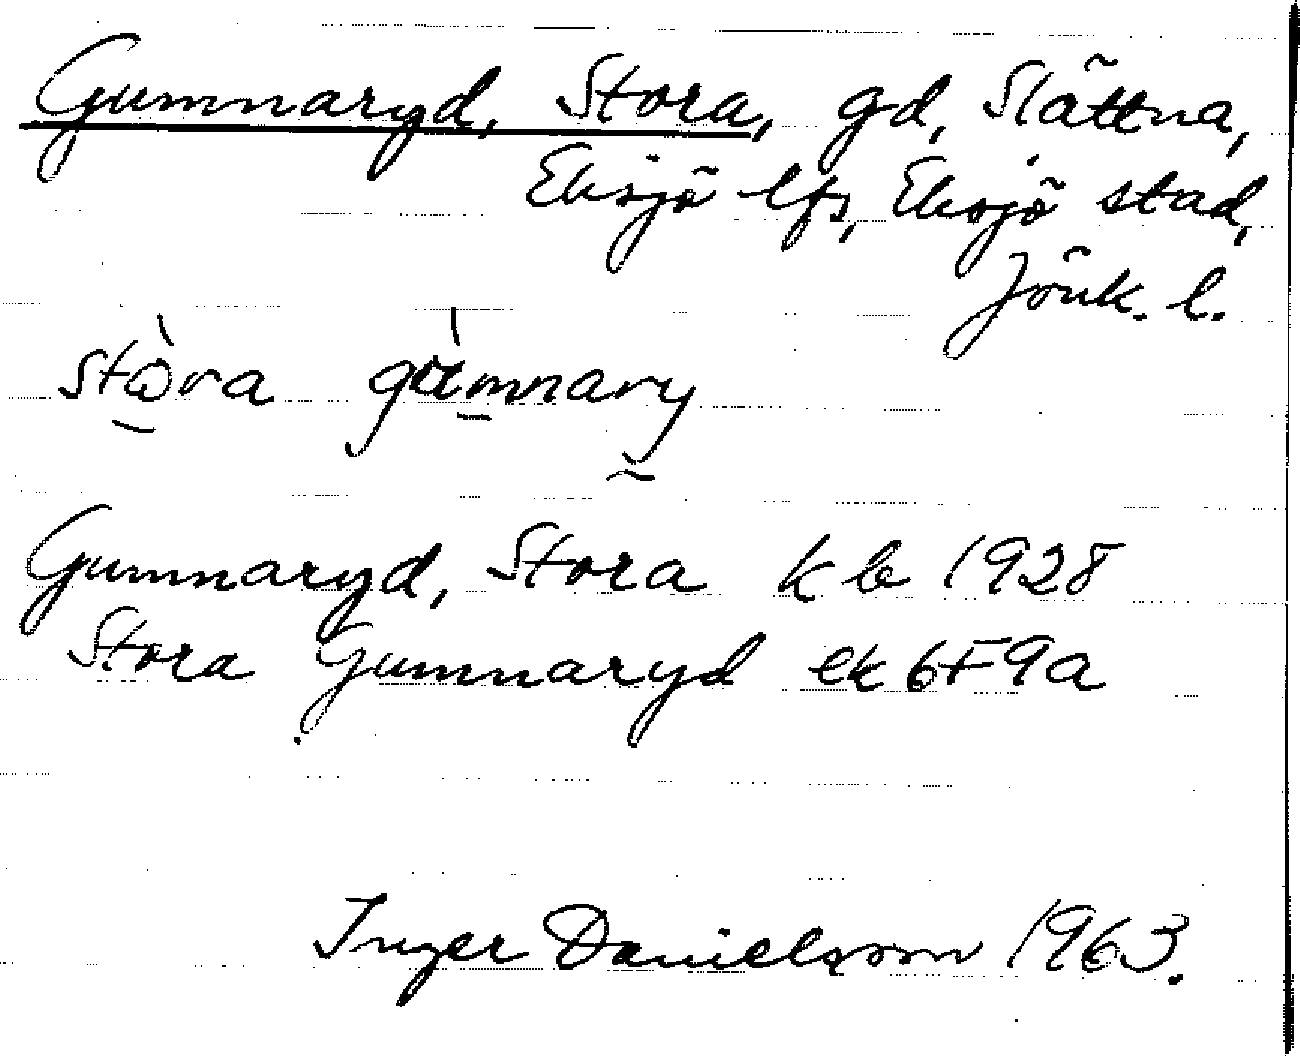 Gummaryd, Stora, gd, Slättna,
Eksjö lfs, Eksjö stad,
Jönk. l.
Gummaryd, Stora kb 1928
Stora Gummaryd ek 6F9a
Inger Danielsson 1963.